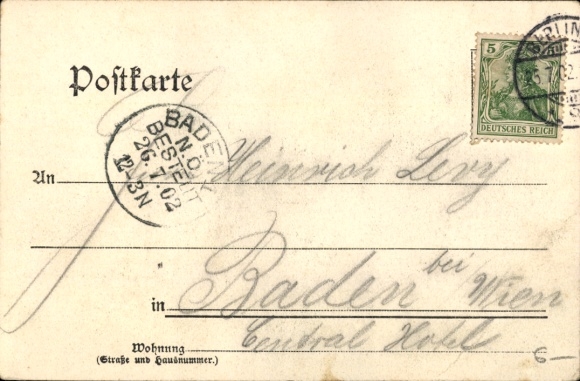 Postkarte
5
DEUTSCHES REICH
BERLIN
25.7.02
BADEN
N.Ö.
BESTELLT
26.7.02
12-3N
An Heinrich Levy
in Baden bei Wien
Wohnung Central Hotel
(Straße und Hausnummer.)
6-